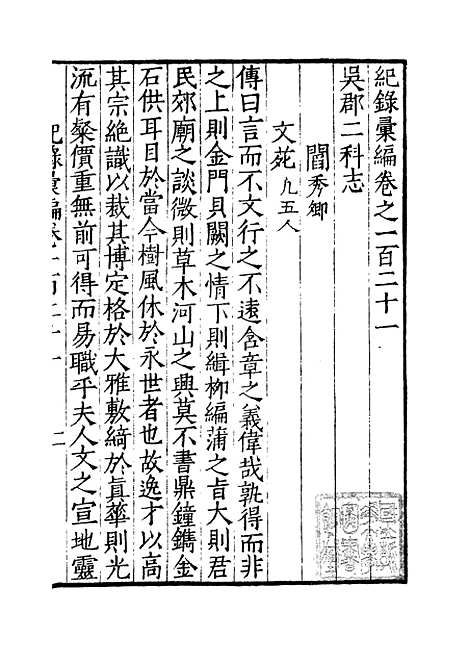 紀錄彙編卷之一百二十一
吳郡二科志
閻秀卿
文苑 凡五人
傳曰言而不文行之不遠含章之義偉哉孰得而非
之上則金門貝闕之情下則緝柳編蒲之旨大則君
民郊廟之談微則草木河山之興莫不書鼎鐘鐫金
石供耳目於當今樹風休於永世者也故逸才以高
其宗絕識以裁其博定格於大雅敷綺於真華則光
流有粲價重無前可得而易職乎夫人文之宣地靈